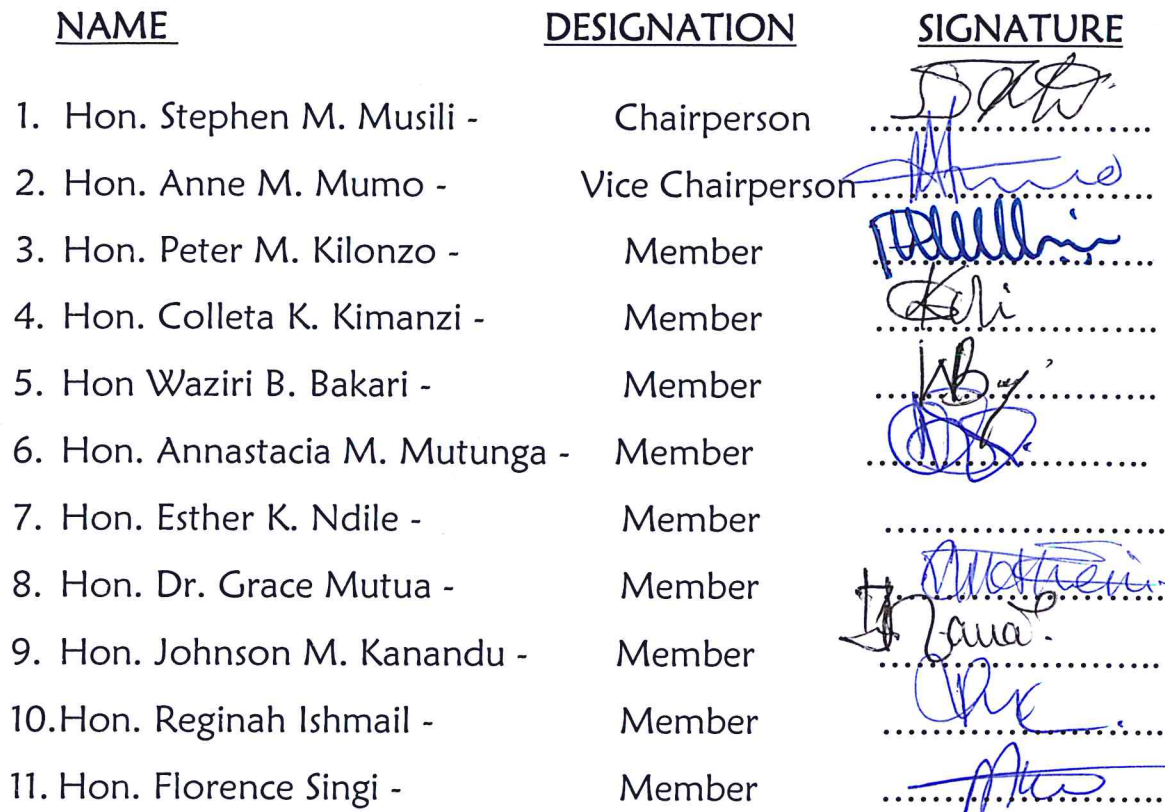 NAME DESIGNATION SIGNATURE
1. Hon. Stephen M. Musili - Chairperson ..............................
2. Hon. Anne M. Mumo - Vice Chairperson ..............................
3. Hon. Peter M. Kilonzo - Member ..............................
4. Hon. Colleta K. Kimanzi - Member ..............................
5. Hon Waziri B. Bakari - Member ..............................
6. Hon. Annastacia M. Mutunga - Member ..............................
7. Hon. Esther K. Ndile - Member ..............................
8. Hon. Dr. Grace Mutua - Member ..............................
9. Hon. Johnson M. Kanandu - Member ..............................
10.Hon. Reginah Ishmail - Member ..............................
11. Hon. Florence Singi - Member ..............................